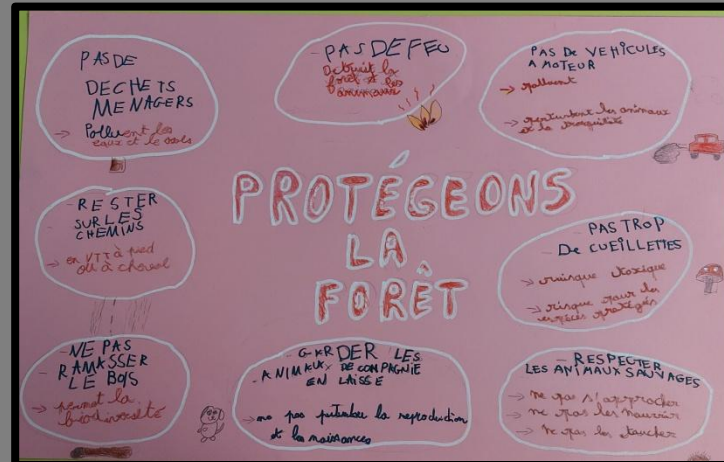 PAS DE
DECHETS
MENAGERS
→ Polluent les
eaux et le sols
- PAS DE FEU
Detruit la
foret et les
animaux
PAS DE VEHICULES
A MOTEUR
→ polluent
→ perturbent les animaux
et la tranquilité
PROTÉGEONS
LA
FORÊT
- RESTER
SUR LES
CHEMINS
→ en VTT à pied
ou à cheval
PAS TROP
De CUEILLETTES
→ risque toxique
→ risque pour les
espèces protégés
- NE PAS
RAMASSER
LE BOIS
→ permet la
biodiversité
- GARDER LES
ANIMAUX DE COMPAGNIE
EN LAISSE
→ ne pas pertuber la reproduction
et les naissances
- RESPECTER
LES ANIMAUX SAUVAGES
→ ne pas s'approcher
→ ne pas les nourrir
→ ne pas les toucher